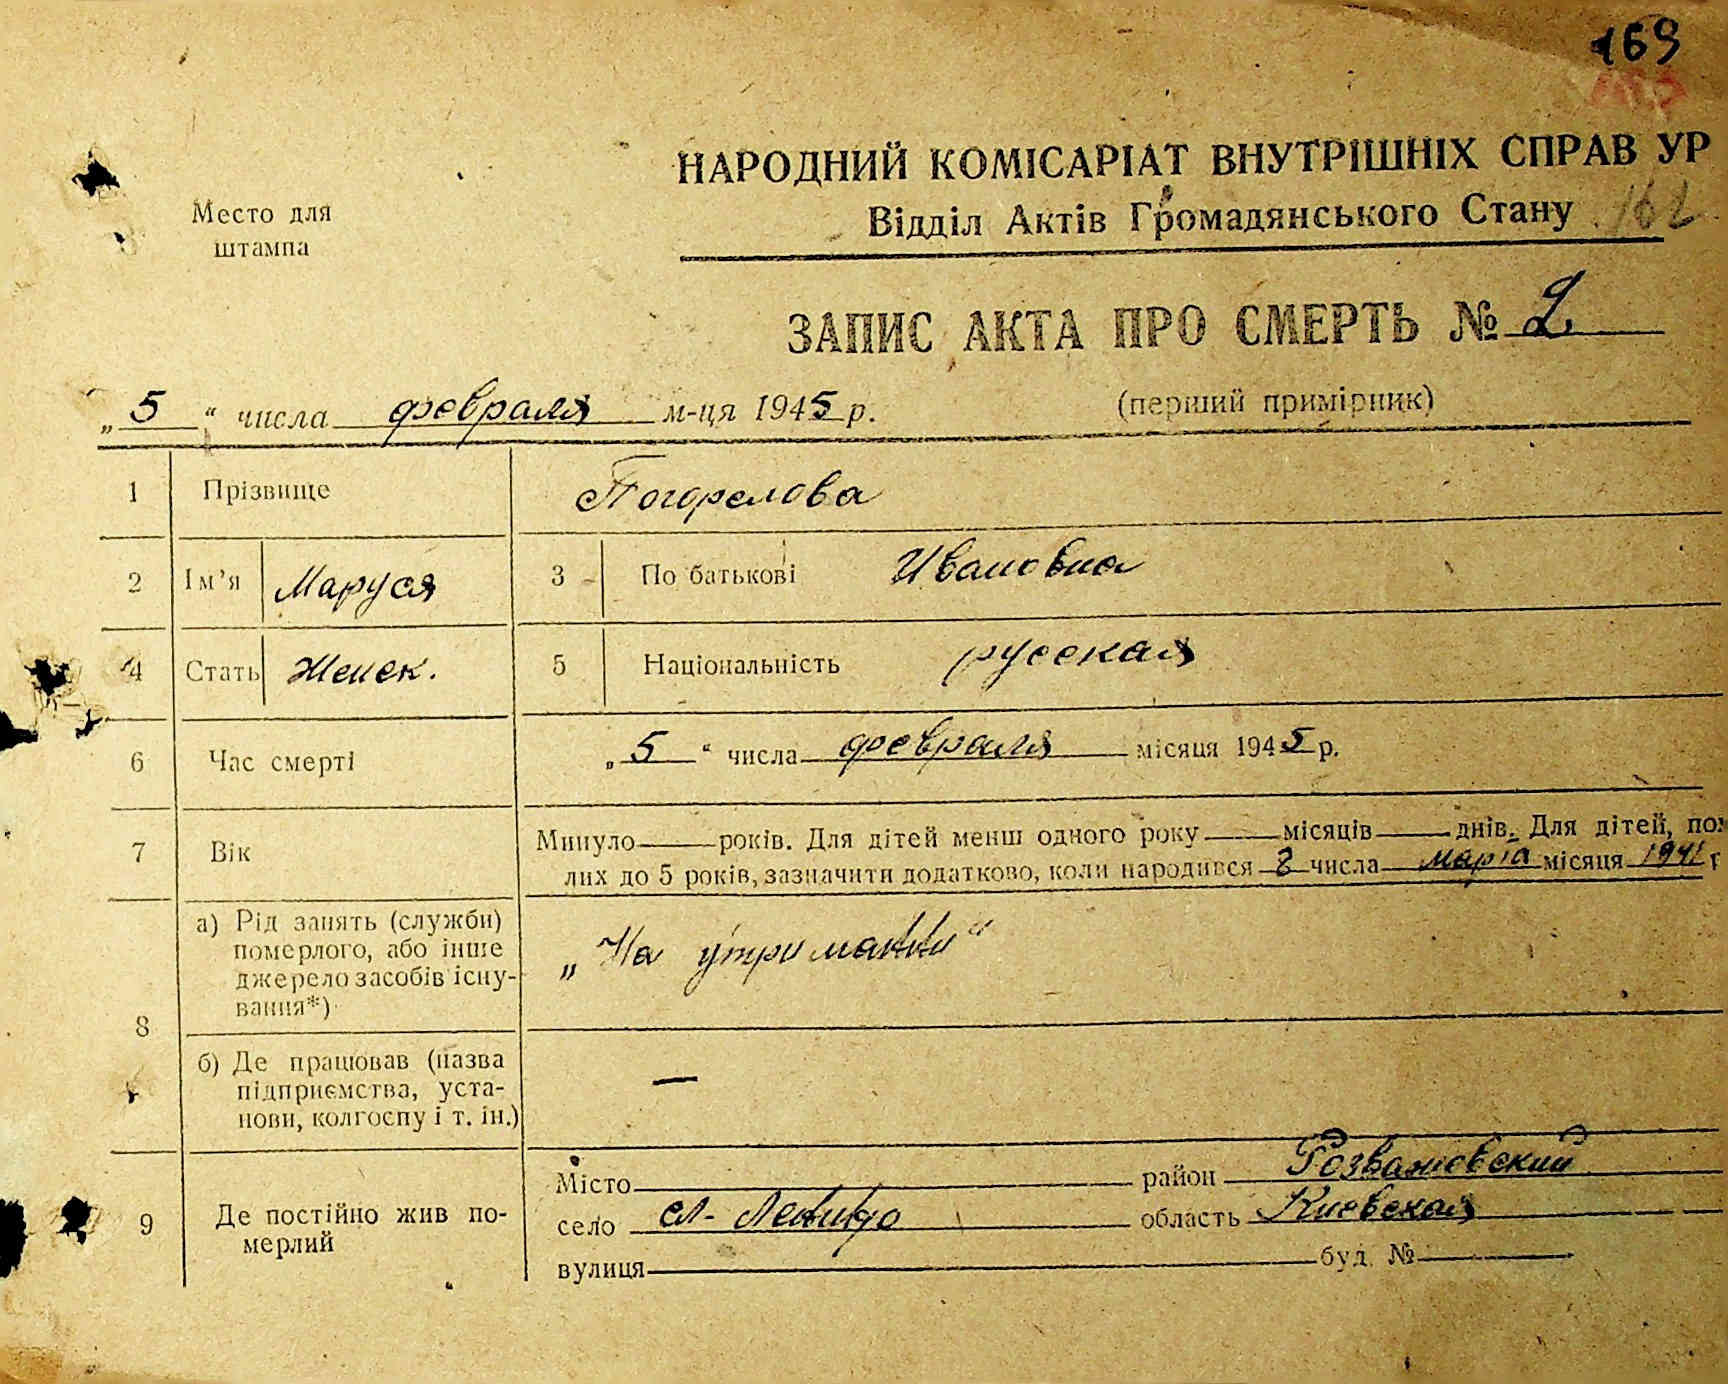 169
НАРОДНИЙ КОМІСАРІАТ ВНУТРІШНІХ СПРАВ УР
Место для
штампа
Відділ Актів Громадянського Стану 162
ЗАПИС АКТА ПРО СМЕРТЬ № 2
„5“ числа февраля м-ця 1945 р. (перший примірник)
1 Прізвище Погорелова
2 Ім’я Маруся 3 По батькові Ивановна
4 Стать Женск. 5 Національність русская
6 Час смерті „5“ числа февраля місяця 1945 р.
7 Вік Минуло року років. Для дітей менш одного року місяців днів. Для дітей, пом
лих до 5 років, зазначити додатково, коли народився 8 числа марта місяця 1941 р
8 а) Рід занять (служби)
померлого, або інше
джерело засобів існу-
вання*)
„На утриманни“
б) Де працював (назва
підприємства, уста-
нови, колгоспу і т. ін.)
—
9 Де постійно жив по-
мерлий
Місто район Розважевский
село сл- область Киевская
вулиця буд. №